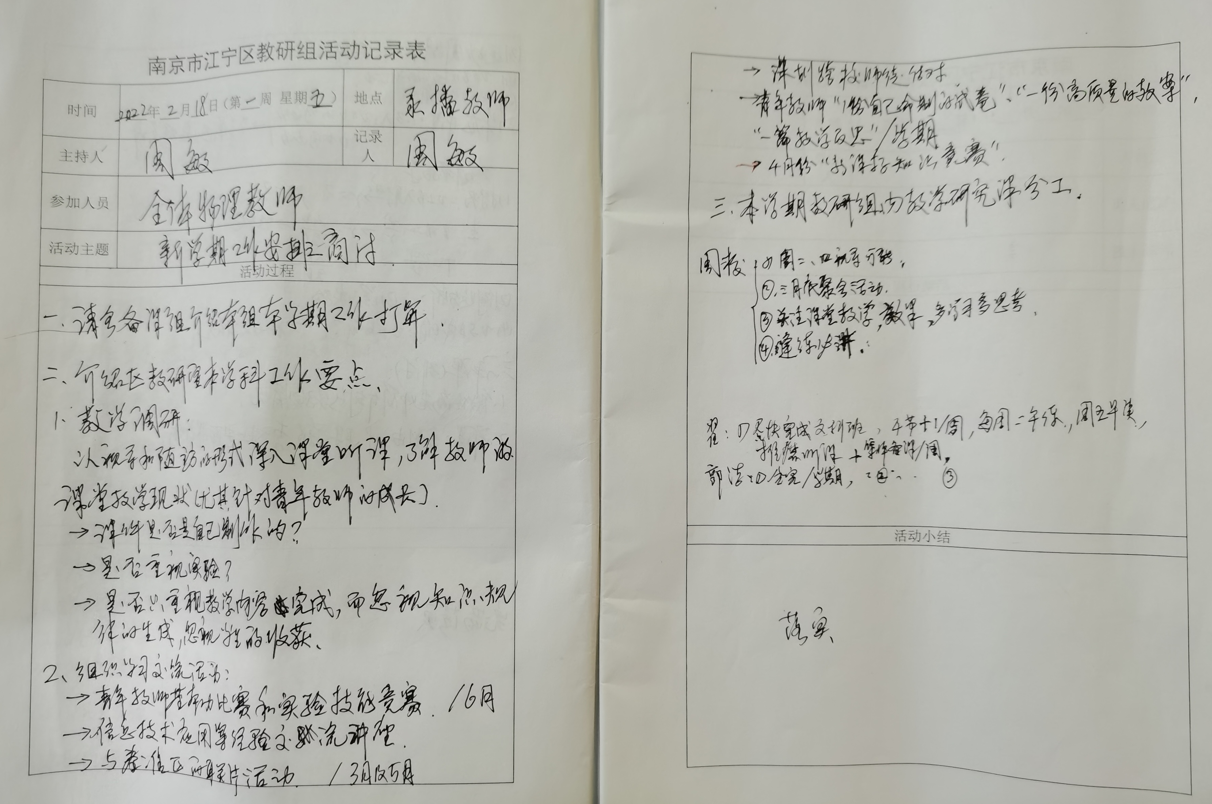 南京市江宁区教研组活动记录表
时间 2022年2月18日(第一周 星期五) 地点 录播教师
主持人 周敏 记录人 周敏
参加人员 全体物理教师
活动主题 新学期工作安排商讨
活动过程
一、请各备课组介绍本组本学期工作打算
二、介绍区教研室本学科工作要点、
1、教学调研:
以视导和随访的形式深入课堂听课,了解教师的
课堂教学现状(尤其针对青年教师的成长)
→课件是否是自己制作的?
→是否重视实验?
→是否只重视教学内容完成,而忽视知识规
律的生成,忽视学生的收获、
2、组织学习交流活动:
→青年教师基本功比赛和实验技能竞赛 /6月
→信息技术应用等经验交流
→与 活动. /3月及5月
→
→青年教师“一份自己命制的试卷”、“一份高质量的教案”,
“一篇教学反思”/学期
→4月份“ 知识竞赛”.
三、本学期教研组内教学研究课分工.
周
①周二、
②三月底聚会活动.
③关注课堂教学,效果,多学习多思考.
④ 练必讲.
①尽快完成 , 4节 /周, 每周二午练, 周五早读,
推磨听课 + 备课/周.
/学期, ② ③
活动小结
落实